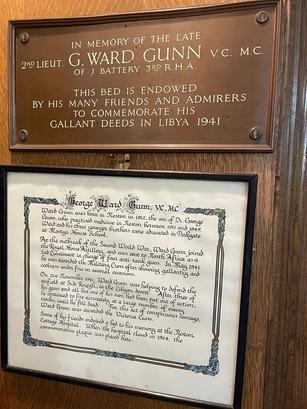 IN MEMORY OF THE LATE
2ND LIEUT. G. WARD GUNN V.C. M.C.
OF J BATTERY 3RD R.H.A.
THIS BED IS ENDOWED
BY HIS MANY FRIENDS AND ADMIRERS
TO COMMEMORATE HIS
GALLANT DEEDS IN LIBYA 1941
George Ward Gunn, VC, MC
Ward Gunn was born in Neston in 1912, the son of Dr. George
Gunn, who practised medicine in Neston between 1911 and
Ward and his three younger brothers were educated in Parkgate
at Mostyn House School.
At the outbreak of the Second World War, Ward Gunn joined
the Royal Horse Artillery, and was sent to North Africa as a
2nd Lieutenant in charge of four anti-tank guns. In May 1941
he was awarded the Military Cross after showing gallantry and
coolness under fire on several occasions.
On 21st November 1941, Ward Gunn was helping to defend the
airfield at Sidi Rezegh, in the Libyan desert. After three of
his guns and all but one of his men had been put out of action,
he continued to fire accurately at a large number of enemy
tanks, until he fell dead. For this act of conspicuous courage,
Ward Gunn was awarded the Victoria Cross.
Some of his friends endowed a bed to his memory at the Neston
Cottage Hospital. When the hospital closed in 1964, the
commemorative plaque was placed here.